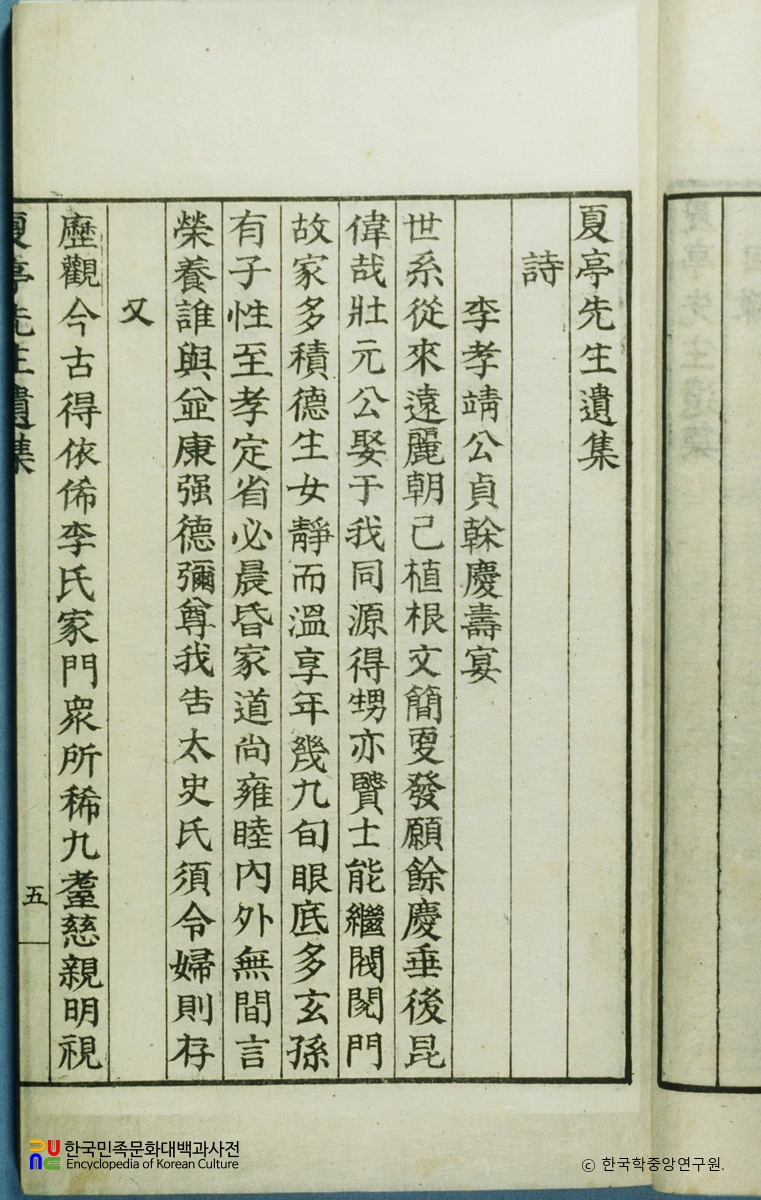 夏亭先生遺集
詩
李孝靖公貞榦慶壽宴
世系從來遠麗朝己植根文簡夏發願餘慶垂後昆
偉哉壯元公娶于我同源得甥亦賢士能繼閥閱門
故家多積德生女靜而溫享年幾九旬眼底多玄孫
有子性至孝定省必晨昏家道尚雍睦內外無間言
榮養誰與並康强德彌尊我告太史氏須令婦則存
又
歷觀今古得依俙李氏家門衆所稀九耋慈親明視
夏亭先生遺集
五
한국민족문화대백과사전
Encyclopedia of Korean Culture
ⓒ 한국학중앙연구원.